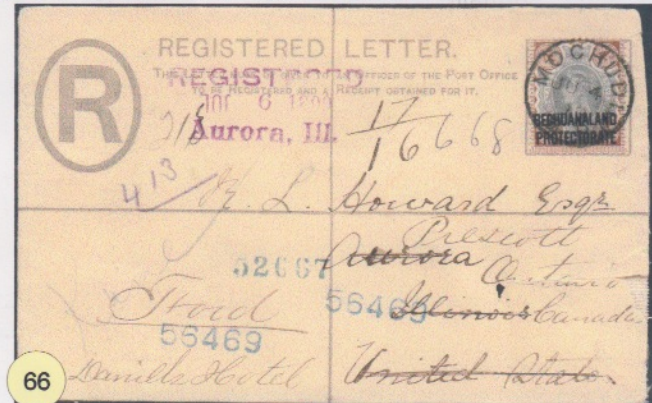 REGISTERED LETTER.
THIS LETTER MUST BE GIVEN TO AN OFFICER OF THE POST OFFICE
TO BE REGISTERED AND A RECEIPT OBTAINED FOR IT.
R
REGISTERED
Aurora, Ill.
MOCHUDI
BECHUANALAND
PROTECTORATE
17
16668
413
L. Howard Esqr
Prescott
Aurora
Ontario
Illinois Canada
United States
52667
56469
56469
Daniells Hotel
66